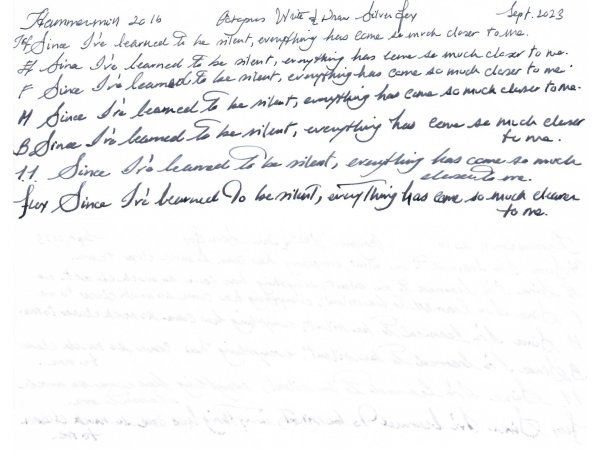 Hammermill 2016 Octopus Write & Draw Silver Fox Sept. 2023
Since I've learned to be silent, everything has come so much closer to me.
EF Since I've learned to be silent, everything has come so much closer to me.
F Since I've learned to be silent, everything has come so much closer to me.
M Since I've learned to be silent, everything has come so much closer to me.
B Since I've learned to be silent, everything has come so much closer
to me.
1.1 Since I've learned to be silent, everything has come so much
closer to me.
Since I've learned to be silent, everything has come so much closer
to me.